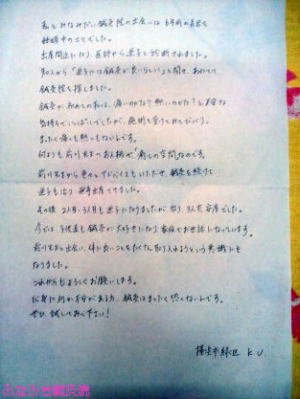 私とみなみだい鍼灸院の出会いは
妊娠中のことでした。
出産間近になり、医師から逆子と診断されました。
知人から「逆子には鍼灸が良いらしい」と聞き、あわてて
鍼灸院を探しました。
鍼灸が初めての私は、痛いのかな？熱いのかな？と不安な
気持ちでいっぱいでしたが、施術を受けてみてびっくり。
まったく痛くも熱くもないんです。
何よりも前川先生のお人柄が「癒しの空間」なのです。
前川先生から色々とアドバイスをいただき、鍼灸を続けて
逆子も治り、無事出産できました。
その後、2人目、3人目も逆子になりましたが治り、3人共安産でした。
今では子供達も鍼灸が大好きになり家族でお世話になっています。
前川先生と出会い、体に良いことをたくさん取り入れようという意識にも
なりました。
これからもよろしくお願いします。
鍼灸はまったく恐くないんです。
ぜひ、試してみて下さい！
横浜市緑区 K.U
みなみ台鍼灸院